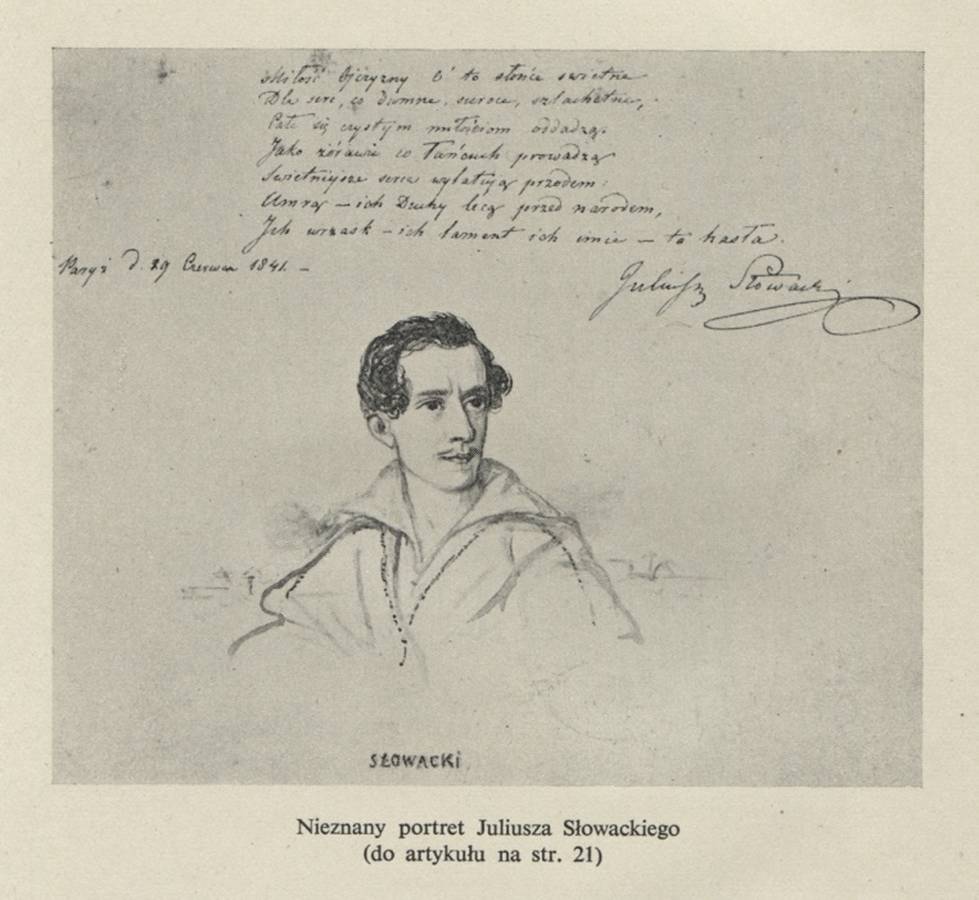 Miłość Ojczyzny O' to słońce świetne
Dla serc, co dumne, sieroce, szlachetne,
Całe się czystym miłościom oddadzą.
Jako żórawie co łańcuch prowadzą
Świetniejsze serca wylatują przodem:
Umrą – ich Duchy lecą przed narodem,
Ich wrzask – ich lament ich imie – to hasła.
Paryż d. 29 Czerwca 1841. –
Juliusz Słowacki
SŁOWACKi
Nieznany portret Juliusza Słowackiego
(do artykułu na str. 21)